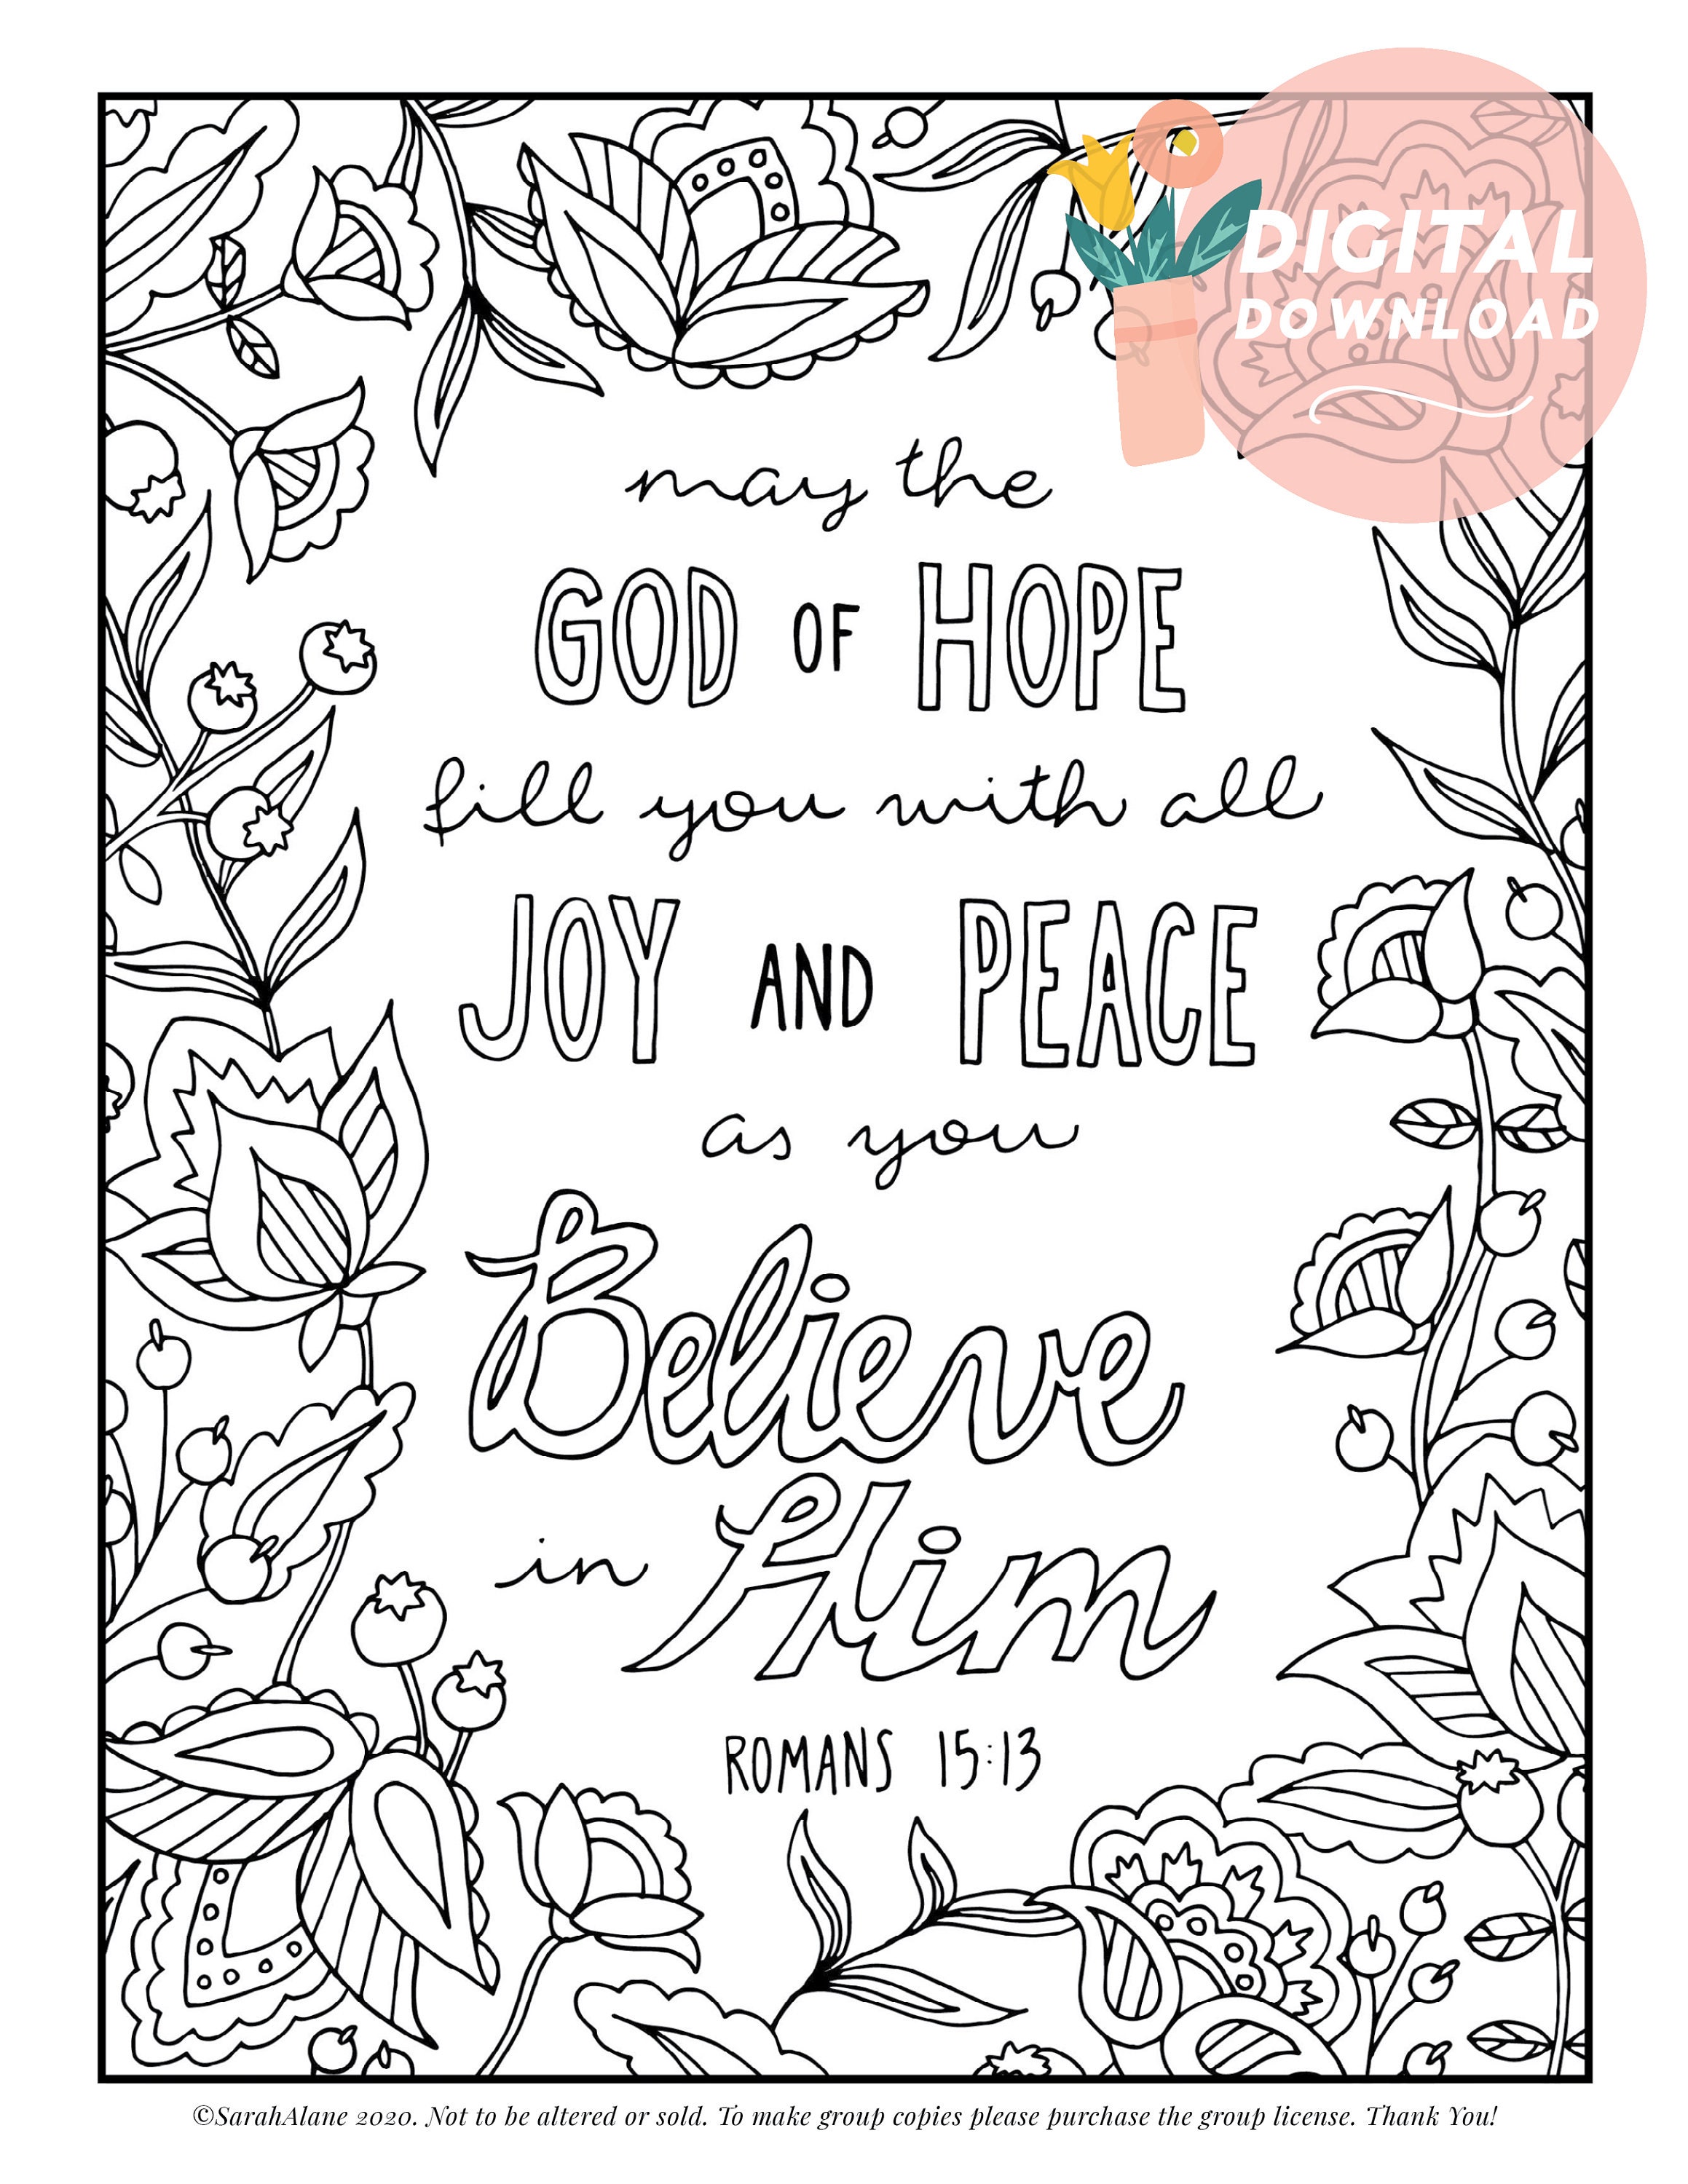 DIGITAL
DOWNLOAD
may the
GOD OF HOPE
fill you with all
JOY AND PEACE
as you
Believe
in Him
ROMANS 15:13
©SarahAlane 2020. Not to be altered or sold. To make group copies please purchase the group license. Thank You!